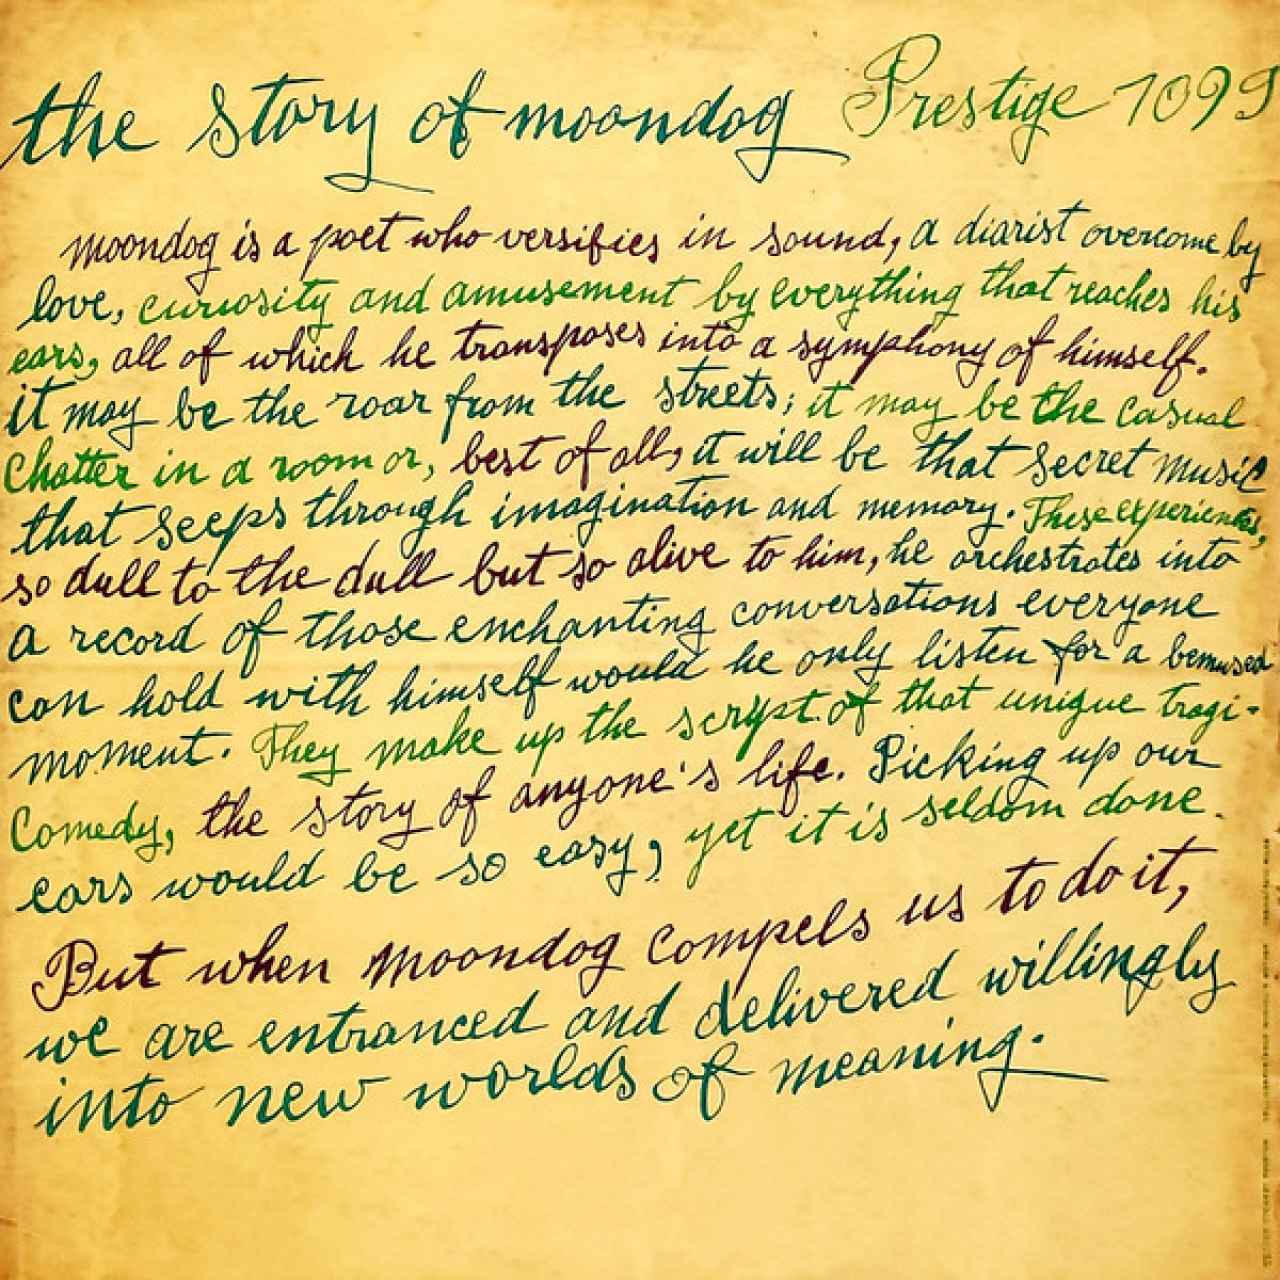 the story of moondog Prestige 7099
moondog is a poet who versifies in sound, a diarist overcome by
love, curiosity and amusement by everything that reaches his
ears, all of which he transposes into a symphony of himself.
it may be the roar from the streets; it may be the casual
chatter in a room or, best of all, it will be that secret music
that seeps through imagination and memory. These experiences,
so dull to the dull but so alive to him, he orchestrates into
a record of those enchanting conversations everyone
can hold with himself would he only listen for a bemused
moment. They make up the script of that unique tragi-
Comedy, the story of anyone's life. Picking up our
ears would be so easy, yet it is seldom done.
But when Moondog compels us to do it,
we are entranced and delivered willingly
into new worlds of meaning.